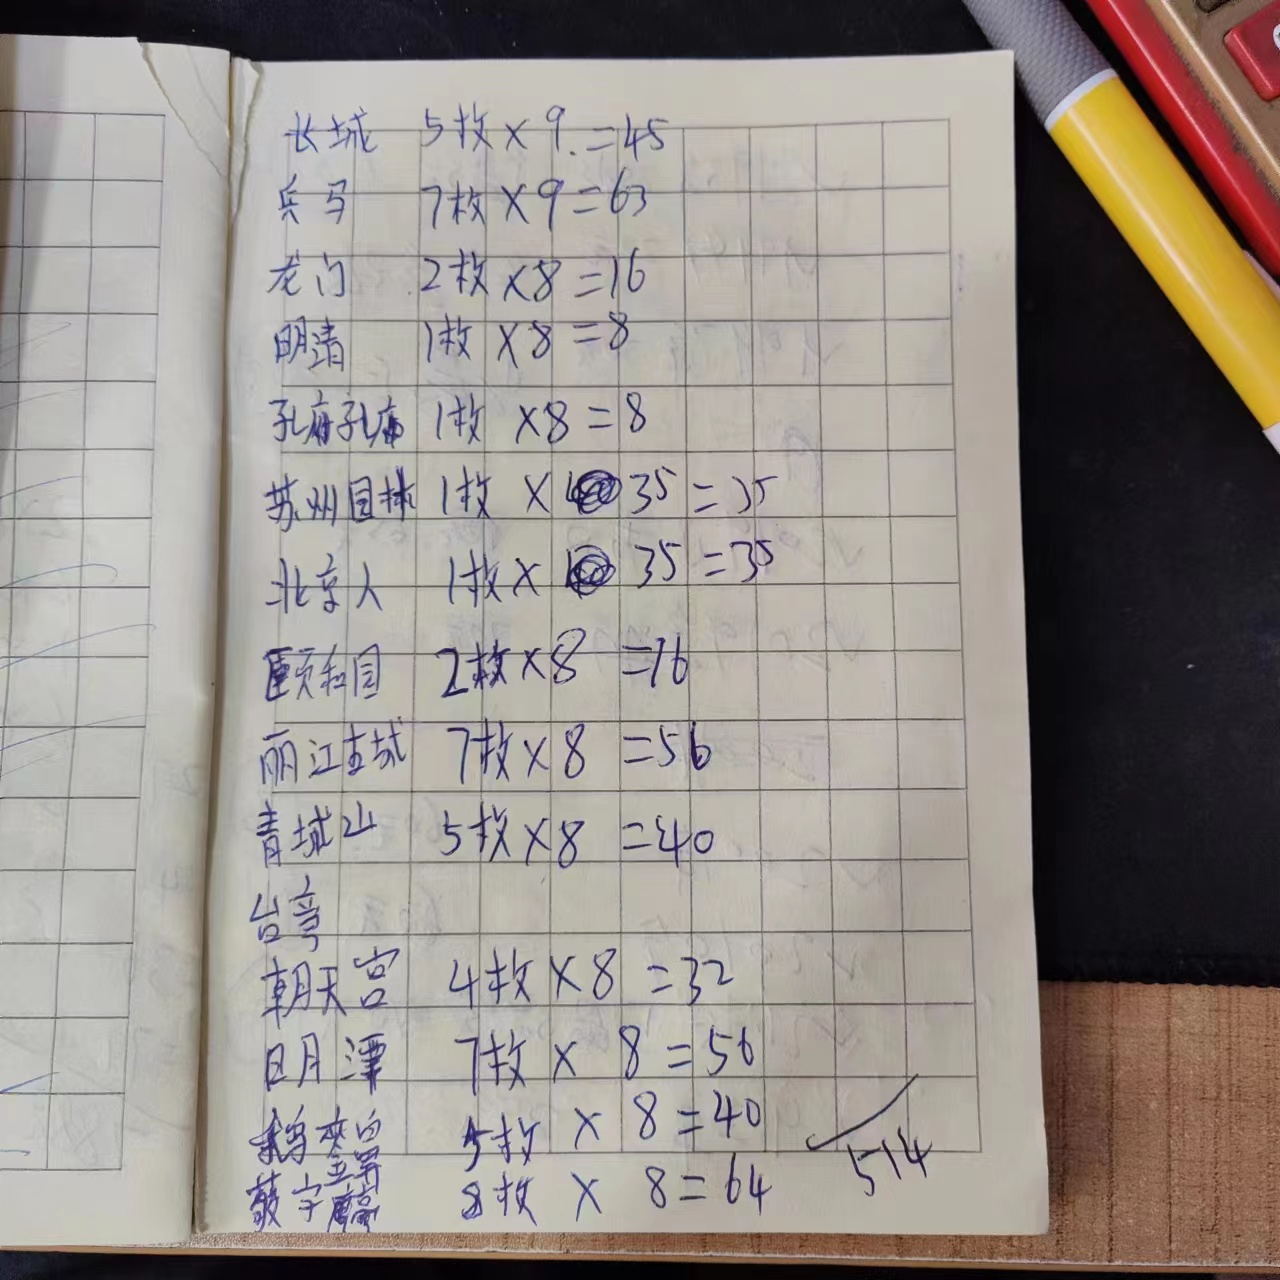 长城 5枚×9.=45
兵马 7枚×9=63
龙门 2枚×8=16
明清 1枚×8=8
孔府孔庙 1枚×8=8
苏州园林 1枚×35=35
北京人 1枚×35=35
颐和园 2枚×8=16
丽江古城 7枚×8=56
青城山 5枚×8=40
台弯
朝天宫 4枚×8=32
日月潭 7枚×8=56
鹅銮鼻 5枚×8=40
敬字亭 8枚×8=64
514